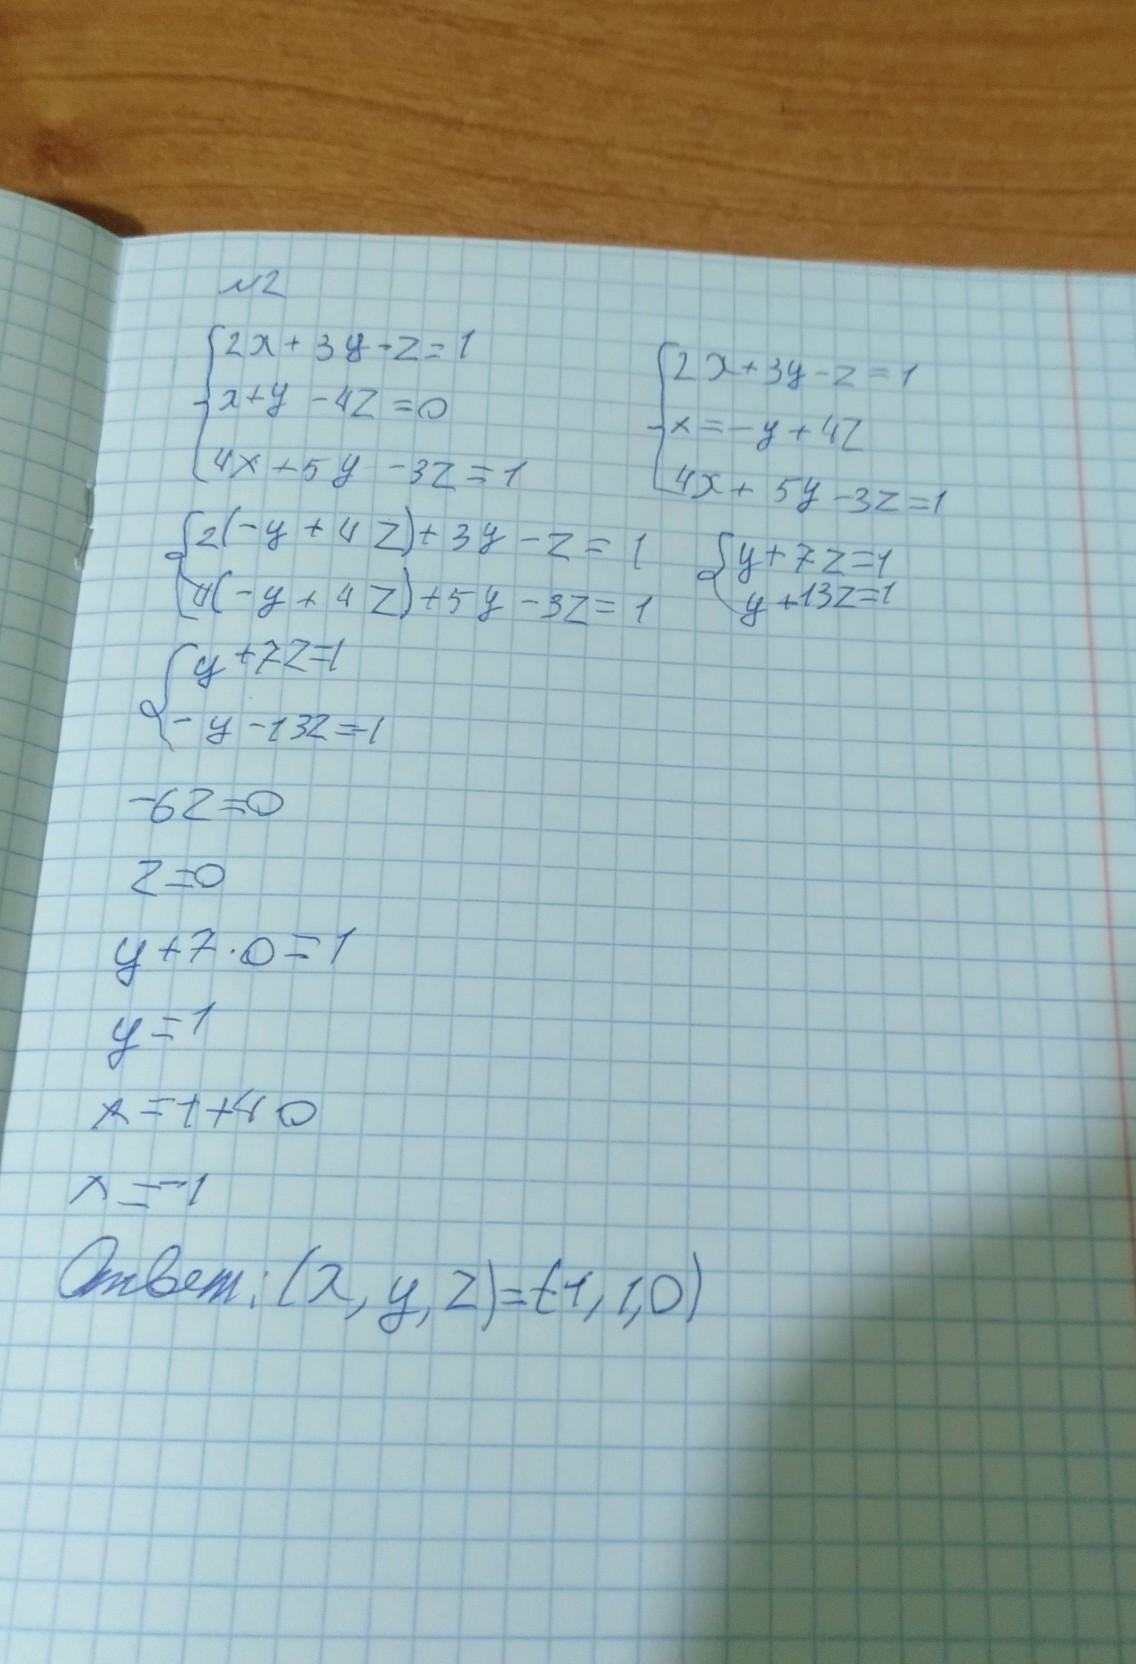 №2
{2x+3y-z=1
x+y-4z=0
4x+5y-3z=1
{2x+3y-z=1
x=-y+4z
4x+5y-3z=1
{2(-y+4z)+3y-z=1
4(-y+4z)+5y-3z=1
{y+7z=1
y+13z=1
{y+7z=1
-y-13z=-1
-6z=0
z=0
y+7·0=1
y=1
x=-1+4·0
x=-1
Ответ: (x, y, z)=(-1, 1, 0)